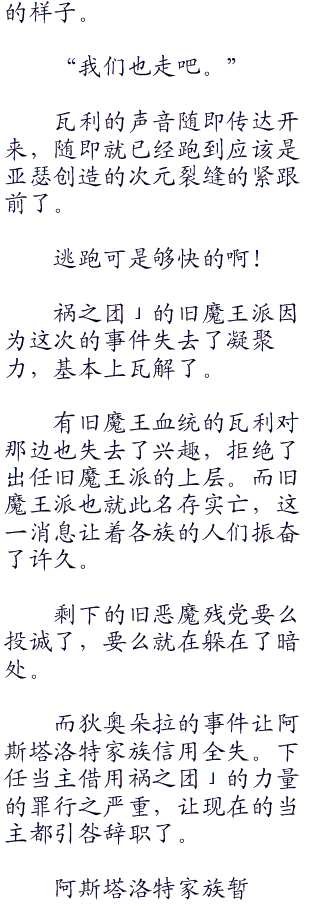 的样子。
“我们也走吧。”
瓦利的声音随即传达开
来，随即就已经跑到应该是
亚瑟创造的次元裂缝的紧跟
前了。
逃跑可是够快的啊！
祸之团」的旧魔王派因
为这次的事件失去了凝聚
力，基本上瓦解了。
有旧魔王血统的瓦利对
那边也失去了兴趣，拒绝了
出任旧魔王派的上层。而旧
魔王派也就此名存实亡，这
一消息让着各族的人们振奋
了许久。
剩下的旧恶魔残党要么
投诚了，要么就在躲在了暗
处。
而狄奥朵拉的事件让阿
斯塔洛特家族信用全失。下
任当主借用祸之团」的力量
的罪行之严重，让现在的当
主都引咎辞职了。
阿斯塔洛特家族暂